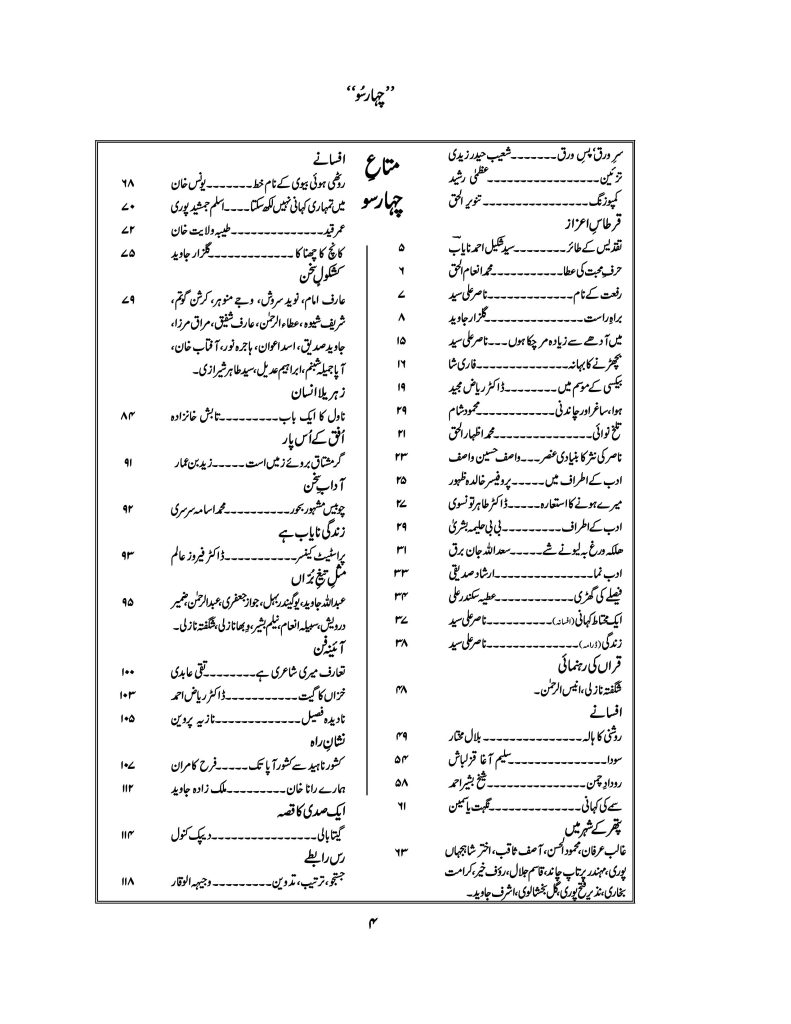 ”چہارسُو“
متاعِ
چہارسو
سرِ ورق، پسِ ورق۔۔۔۔۔۔۔شعیب حیدر زیدی
تزئین۔۔۔۔۔۔۔۔۔۔۔۔۔۔۔۔عظمٰی رشید
کمپوزنگ۔۔۔۔۔۔۔۔۔۔۔۔۔۔۔تنویر الحق
قرطاسِ اعزاز
تقدیس کے طائر۔۔۔۔۔۔۔سید شکیل احمد نایاب ۵
حرفِ محبت کی عطا۔۔۔۔۔۔۔۔۔۔۔محمد انعام الحق ۶
رفعت کے نام۔۔۔۔۔۔۔۔۔۔۔۔۔ناصر علی سید ۷
براہِ راست۔۔۔۔۔۔۔۔۔۔۔۔۔۔گلزار جاوید ۸
میں آدھے سے زیادہ مر چکا ہوں۔۔۔ناصر علی سید ۱۵
بچھڑنے کا بہانہ۔۔۔۔۔۔۔۔۔۔۔۔۔۔فاری شا ۱۶
بیکسی کے موسم میں۔۔۔۔۔۔۔ڈاکٹر ریاض مجید ۱۹
ہوا، ساغر اور چاندنی۔۔۔۔۔۔۔۔۔۔۔محمود شام ۲۹
تلخ نوائی۔۔۔۔۔۔۔۔۔۔۔۔۔۔محمد اظہار الحق ۲۱
ناصر کی نثر کا بنیادی عنصر۔۔۔واصف حسین واصف ۲۳
ادب کے اطراف میں۔۔۔۔۔پروفیسر خالدہ ظہور ۲۵
میرے ہونے کا استعارہ۔۔۔۔۔ڈاکٹر طاہر تونسوی ۲۷
ادب کے اطراف۔۔۔۔۔۔۔۔۔بی بی حلیمہ بشریٰ ۲۹
ھلکہ ورغ بہ لیونے شے۔۔۔۔۔سعد اللہ جان برق ۳۱
ادب نما۔۔۔۔۔۔۔۔۔۔۔۔۔۔۔ارشاد صدیقی ۳۳
فیصلے کی گھڑی۔۔۔۔۔۔۔۔۔۔۔عطیہ سکندر علی ۳۴
ایک محتاط کہانی (افسانہ)۔۔۔۔۔۔۔۔۔ناصر علی سید ۳۷
زندگی (ڈرامہ)۔۔۔۔۔۔۔۔۔۔۔۔۔ناصر علی سید ۳۸
قراں کی رہنمائی
شگفتہ نازلی، انیس الرحمٰن۔ ۴۸
افسانے
روشنی کا ہالہ۔۔۔۔۔۔۔۔۔۔۔۔۔۔۔بلال مختار ۴۹
سودا۔۔۔۔۔۔۔۔۔۔۔۔۔۔سلیم آغا قزلباش ۵۴
رودادِ چمن۔۔۔۔۔۔۔۔۔۔۔۔۔۔۔شیخ بشیر احمد ۵۸
سمے کی کہانی۔۔۔۔۔۔۔۔۔۔۔۔۔نگہت یاسمین ۶۱
پتھر کے شہر میں
غالب عرفان، محمود الحسن، آصف ثاقب، اختر شاہجہاں ۶۳
پوری، مہندر پرتاپ چاند، قاسم جلال، رؤف خیر، کرامت
بخاری، نذیر فتح پوری، گل بخشالوی، اشرف جاوید۔
افسانے
روٹھی ہوئی بیوی کے نام خط۔۔۔۔۔۔۔یونس خان ۶۸
میں تمہاری کہانی نہیں لکھ سکتا۔۔۔۔اسلم جمشید پوری ۷۰
عمر قید۔۔۔۔۔۔۔۔۔۔۔۔۔طیبہ ولایت خان ۷۲
کانچ کا چھناکا۔۔۔۔۔۔۔۔۔۔۔۔گلزار جاوید ۷۵
کشکولِ سخن
عارف امام، نوید سروش، وجے منوہر، کرشن گوتم، ۷۹
شریف شیوہ، عطاء الرحمٰن، عارف شفیق، مراق مرزا،
جاوید صدیق، اسد اعوان، ہاجرہ نور، آفتاب خان،
آپا جمیلہ شبنم، ابراہیم عدیل، سید طاہر شیرازی۔
زہریلا انسان
ناول کا ایک باب۔۔۔۔۔۔۔۔۔تابش خانزادہ ۸۴
اُفق کے اُس پار
گر مشتاق بروئے زمیں است۔۔۔۔۔زید بن عمار ۹۱
آدابِ سخن
چوبیس مشہور بحور۔۔۔۔۔۔۔۔۔۔محمد اسامہ سرسری ۹۲
زندگی نایاب ہے
پراسٹیٹ کینسر۔۔۔۔۔۔۔۔۔۔ڈاکٹر فیروز عالم ۹۳
مثلِ تیغِ بُرّاں
عبداللہ جاوید، یوگیندر بہل، جواز جعفری، عبدالرحمٰن، ضمیر ۹۵
درویش، سہیلہ انعام، نیلم بشیر، وبھا نازلی، شگفتہ نازلی۔
آئینۂ فن
تعارف میری شاعری ہے۔۔۔۔۔۔۔۔تقی عابدی ۱۰۰
خزاں کا گیت۔۔۔۔۔۔۔۔۔۔ڈاکٹر ریاض احمد ۱۰۳
نادیدہ فصیل۔۔۔۔۔۔۔۔۔۔۔۔۔نازیہ پروین ۱۰۵
نشانِ راہ
کشور ناہید سے کشور آپا تک۔۔۔۔۔فرح کامران ۱۰۷
ہمارے رانا خان۔۔۔۔۔۔۔۔۔ملک زادہ جاوید ۱۱۲
ایک صدی کا قصہ
گیتا بالی۔۔۔۔۔۔۔۔۔۔۔۔۔۔۔۔دیپک کنول ۱۱۴
رس رابطے
جستجو، ترتیب، تدوین۔۔۔۔۔۔۔۔۔وجیہہ الوقار ۱۱۸
۴